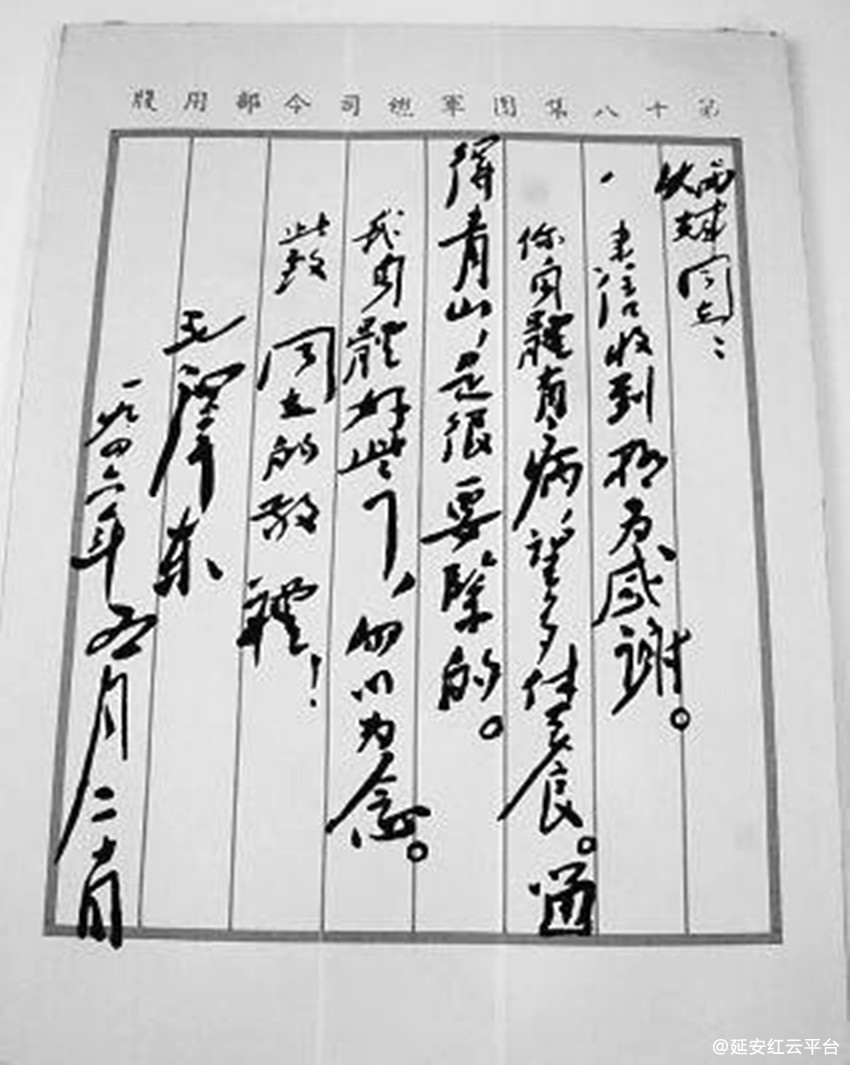 第十八集團軍總司令部用牋
炳輝同志：
來信收到，極为感謝。
你身體有病，望多休養。留
得青山，是很要緊的。
我身體好些了，勿以为念。
此致 同志的敬禮！
毛澤东
一九四六年五月二十日
@延安红云平台